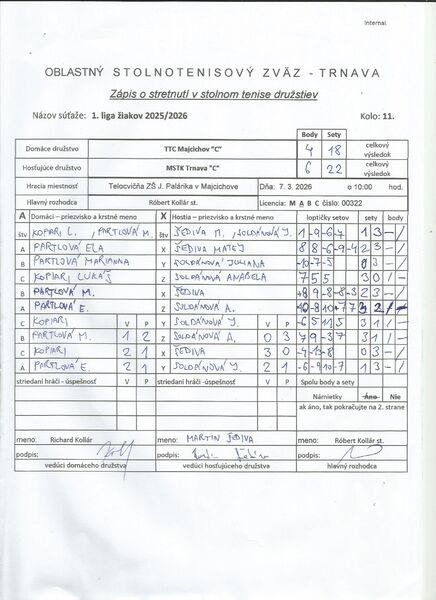 Internal
OBLASTNÝ STOLNOTENISOVÝ ZVÄZ - TRNAVA
Zápis o stretnutí v stolnom tenise družstiev
Názov súťaže: 1. liga žiakov 2025/2026 Kolo: 11.
Body Sety
Domáce družstvo TTC Majcichov "C" 4 18 celkový výsledok
Hosťujúce družstvo MSTK Trnava "C" 6 22 celkový výsledok
Hracia miestnosť Telocvičňa ZŠ J. Palárika v Majcichove Dňa: 7. 3. 2026 o 10:00 hod.
Hlavný rozhodca Róbert Kollár st. Licencia: M A B C číslo: 00322
A Domáci – priezvisko a krstné meno X Hostia – priezvisko a krstné meno loptičky setov sety body
štv KOPARI L., PARTLOVÁ M. štv ŠEDIVA M., SOLDÁNOVÁ J. 1 3 -/
A PARTLOVÁ ELA X ŠEDIVA MATEJ 2 3 -/
B PARTLOVÁ MARIANNA Y SOLDÁNOVÁ JULIANA -10-7-5 0 3 -/
C KOPARI LUKÁŠ Z SOLDÁNOVÁ ANABELA 7 5 5 3 0 /-
B PARTLOVÁ M. X ŠEDIVA 2 3 -/
A PARTLOVÁ E. Z SOLDÁNOVÁ A. 3 2 /-
C KOPARI V P Y SOLDÁNOVÁ J. V P 3 1 /-
B PARTLOVÁ M. 1 2 Z SOLDÁNOVÁ A. 0 3 7 9 -3 7 3 1 /-
C KOPARI 2 1 X ŠEDIVA 3 0 0 3 -/
A PARTLOVÁ E. 2 1 Y SOLDÁNOVÁ J. 2 1 1 3 -/
striedaní hráči - úspešnosť V P striedaní hráči - úspešnosť V P Spolu body a sety
Námietky Áno Nie
ak áno, tak pokračujte na 2. strane
meno: Richard Kollár meno: MARTIN ŠEDIVA meno: Róbert Kollár st.
podpis: podpis: podpis:
vedúci domáceho družstva vedúci hosťujúceho družstva hlavný rozhodca